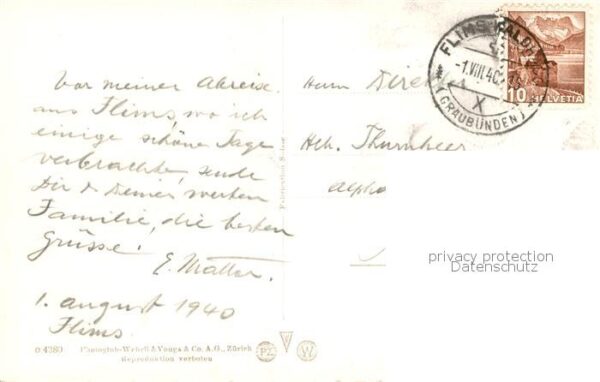 Vor meiner Abreise
aus Flims, wo ich
einige schöne Tage
verbrachte, sende
Dir & Deiner werten
Familie, die besten
Grüsse!
E. Matter.
1. August 1940
Flims.
Herrn
Hch. Thurnheer
Alpha
FLIMS-WALDHAUS
-1.VIII.40
X
(GRAUBÜNDEN)
10 HELVETIA
privacy protection
Datenschutz
O 4380 Photoglob-Wehrli & Vouga & Co. A.G., Zürich
Reproduktion verboten
PZ W